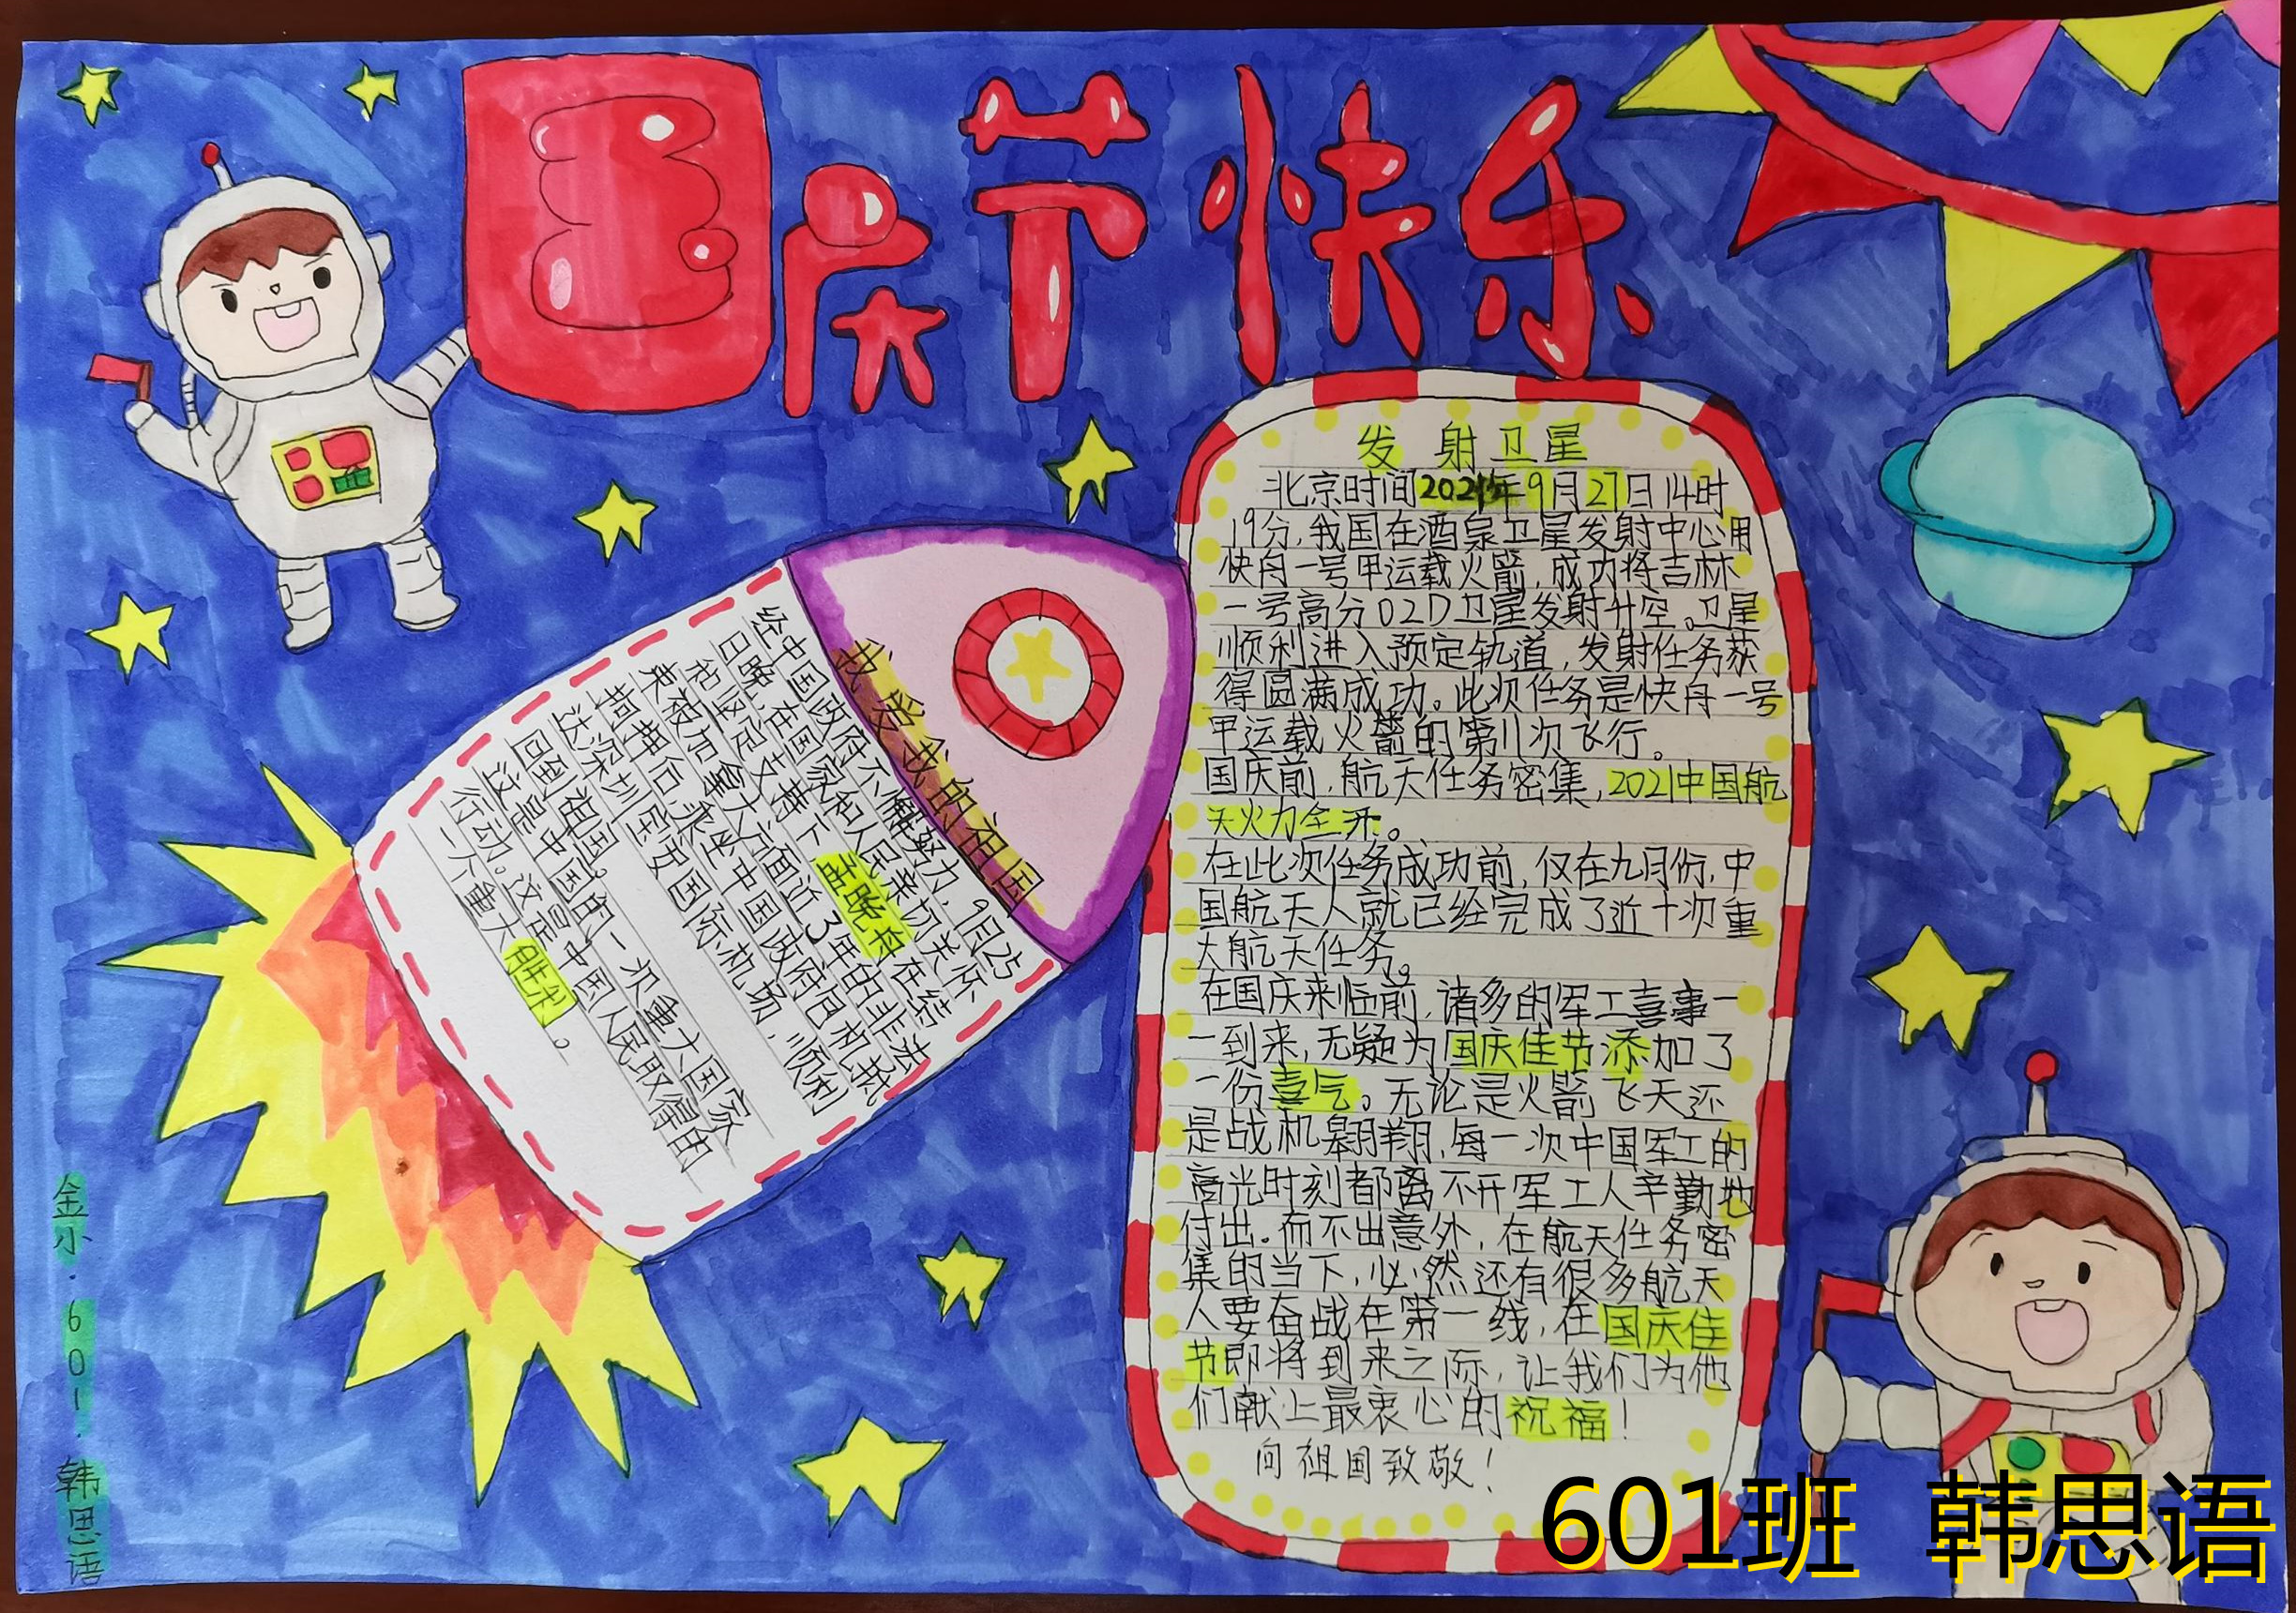 国庆节快乐
我爱我的祖国
经中国政府不懈努力,9月25
日晚,在国家和人民亲切关怀
和坚定支持下,孟晚舟在结
束被加拿大方面近3年的非法
拘押后,乘坐中国政府包机抵
达深圳宝安国际机场,顺利
回到祖国。
这是中国的一次重大国家
行动。这是中国人民取得的
一个重大胜利。
发射卫星
北京时间2021年9月27日14时
19分,我国在酒泉卫星发射中心用
快舟一号甲运载火箭,成功将吉林
一号高分02D卫星发射升空。卫星
顺利进入预定轨道,发射任务获
得圆满成功。此次任务是快舟一号
甲运载火箭的第11次飞行。
国庆前,航天任务密集,2021中国航
天火力全开。
在此次任务成功前,仅在九月份,中
国航天人就已经完成了近十次重
大航天任务。
在国庆来临前,诸多的军工喜事一
一到来,无疑为国庆佳节添加了
一份喜气。无论是火箭飞天还
是战机翱翔,每一次中国军工的
高光时刻都离不开军工人辛勤地
付出。而不出意外,在航天任务密
集的当下,必然还有很多航天
人要奋战在第一线,在国庆佳
节即将到来之际,让我们为他
们献上最衷心的祝福!
向祖国致敬!
金小·601·韩思语
601班 韩思语